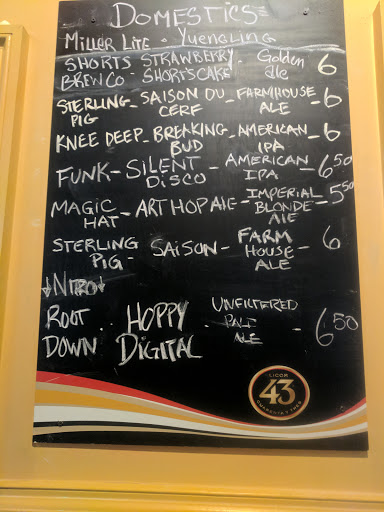 DOMESTICS
MILLER LITE - YUENGLING
SHORTS STRAWBERRY - Golden 6
BREW CO - SHORT'S CAKE Ale
STERLING - SAISON DU - FARMHOUSE - 6
PIG CERF ALE
KNEE DEEP - BREAKING - AMERICAN - 6
BUD IPA
FUNK - SILENT - AMERICAN - 6 50
DISCO IPA
MAGIC - ART HOP ALE - IMPERIAL - 5 50
HAT BLONDE
ALE
STERLING - SAISON - FARM 6
PIG - HOUSE
ALE
↓NITRO↓
ROOT .. HOPPY . UNFILTERED
DOWN DIGITAL PALE - 6 50
ALE
LICOR
43
CUARENTA Y TRES